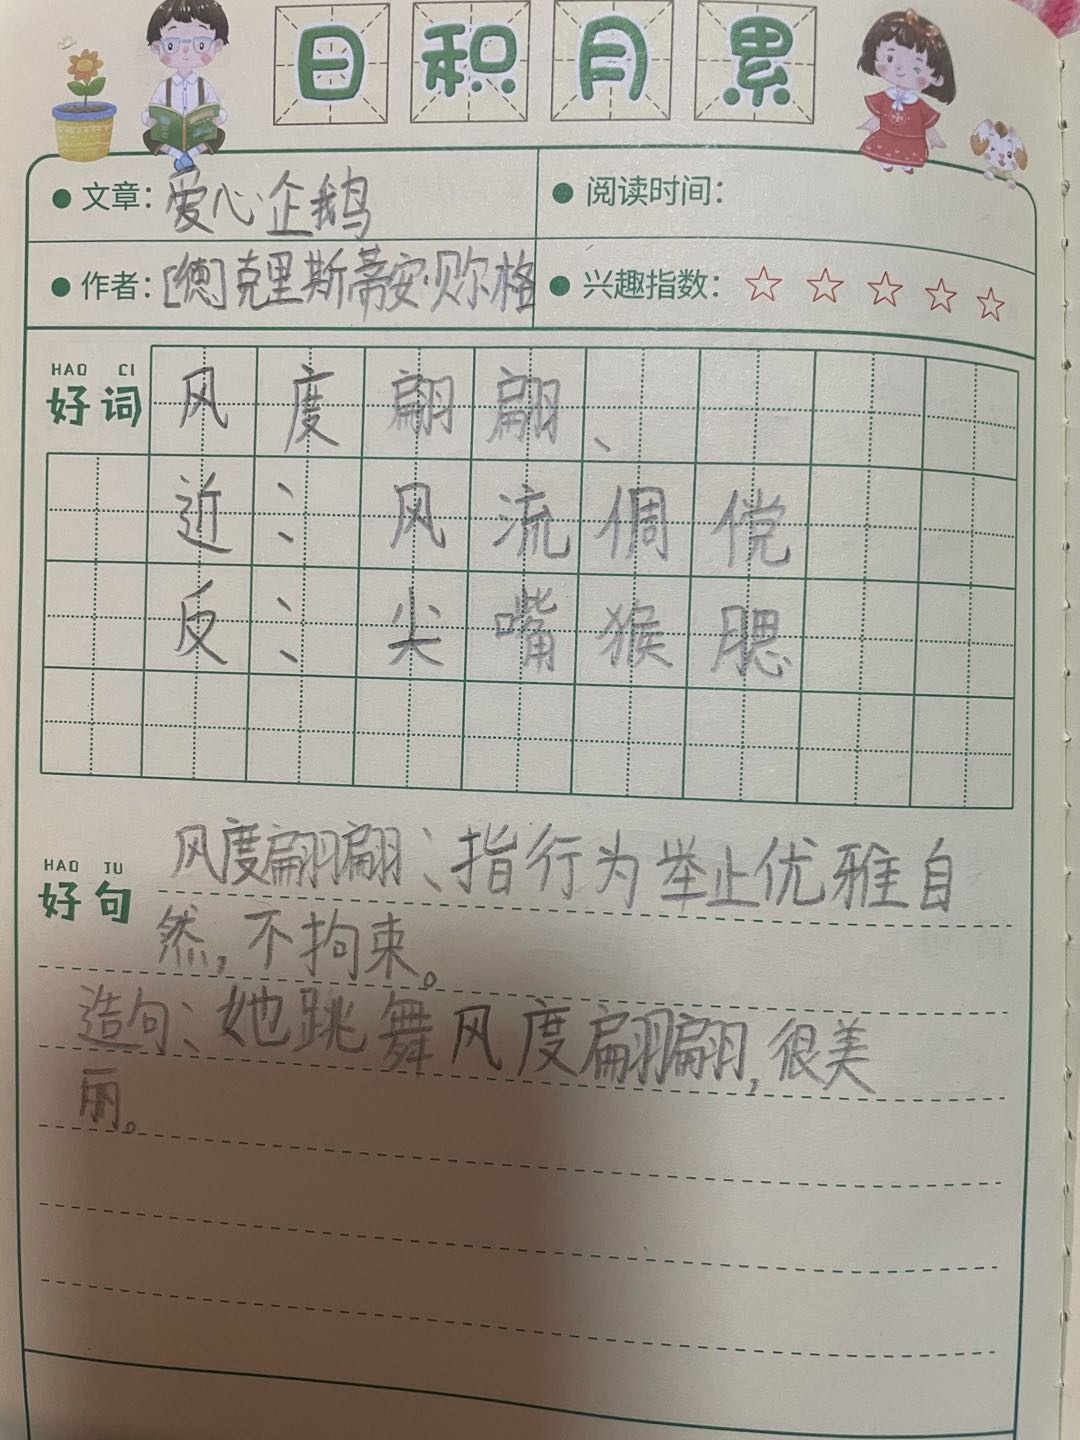 日积月累
文章：爱心企鹅
阅读时间：
作者：[德]克里斯蒂安·贝尔格
兴趣指数：☆☆☆☆☆
HAO CI
好词
风度翩翩、
近：风流倜傥
反：尖嘴猴腮
HAO JU
好句
风度翩翩：指行为举止优雅自
然，不拘束。
造句：她跳舞风度翩翩，很美
丽。